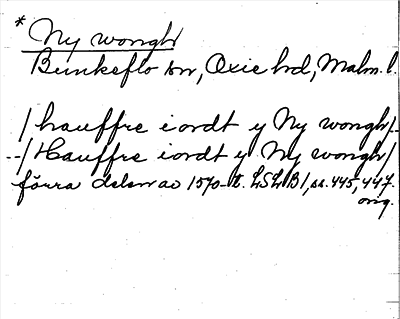 * Ny wongh
Bunkeflo sn, Oxie hd, Malm. l.
/hauffre iordt y Ny wongh/--
--/Hauffre iordt y Ny wongh/
förra delen av 1570-t. LSLB1, ss. 445, 447.
orig.